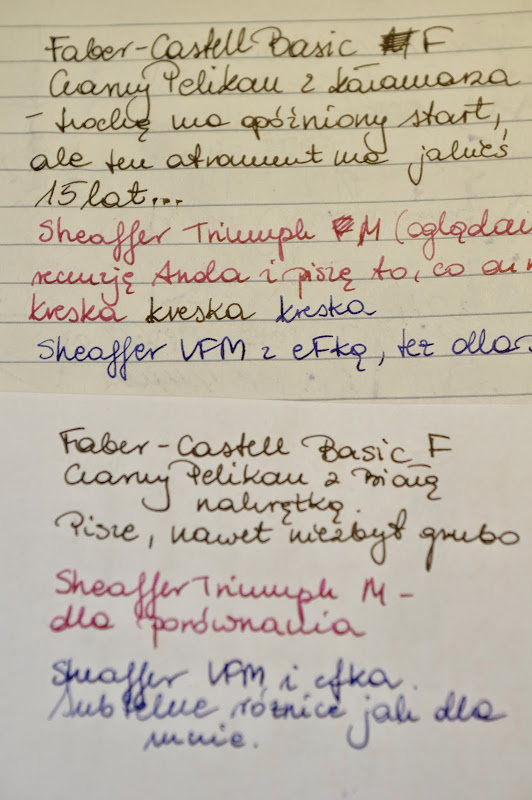 Faber-Castell Basic F
Czarny Pelikan z kałamarza
- trochę ma opóźniony start,
ale ten atrament ma jakieś
15 lat...
Sheaffer Triumph M (oglądam
recenzję Anda i piszę to, co on
kreska kreska kreska
Sheaffer VFM z eFką, też dla
Faber-Castell Basic F
Czarny Pelikan z Białą
nakrętką.
Pisze, nawet niezbyt grubo
Sheaffer Triumph M -
dla porównania
Sheaffer VFM i efka.
Subtelne różnice jak dla
mnie.